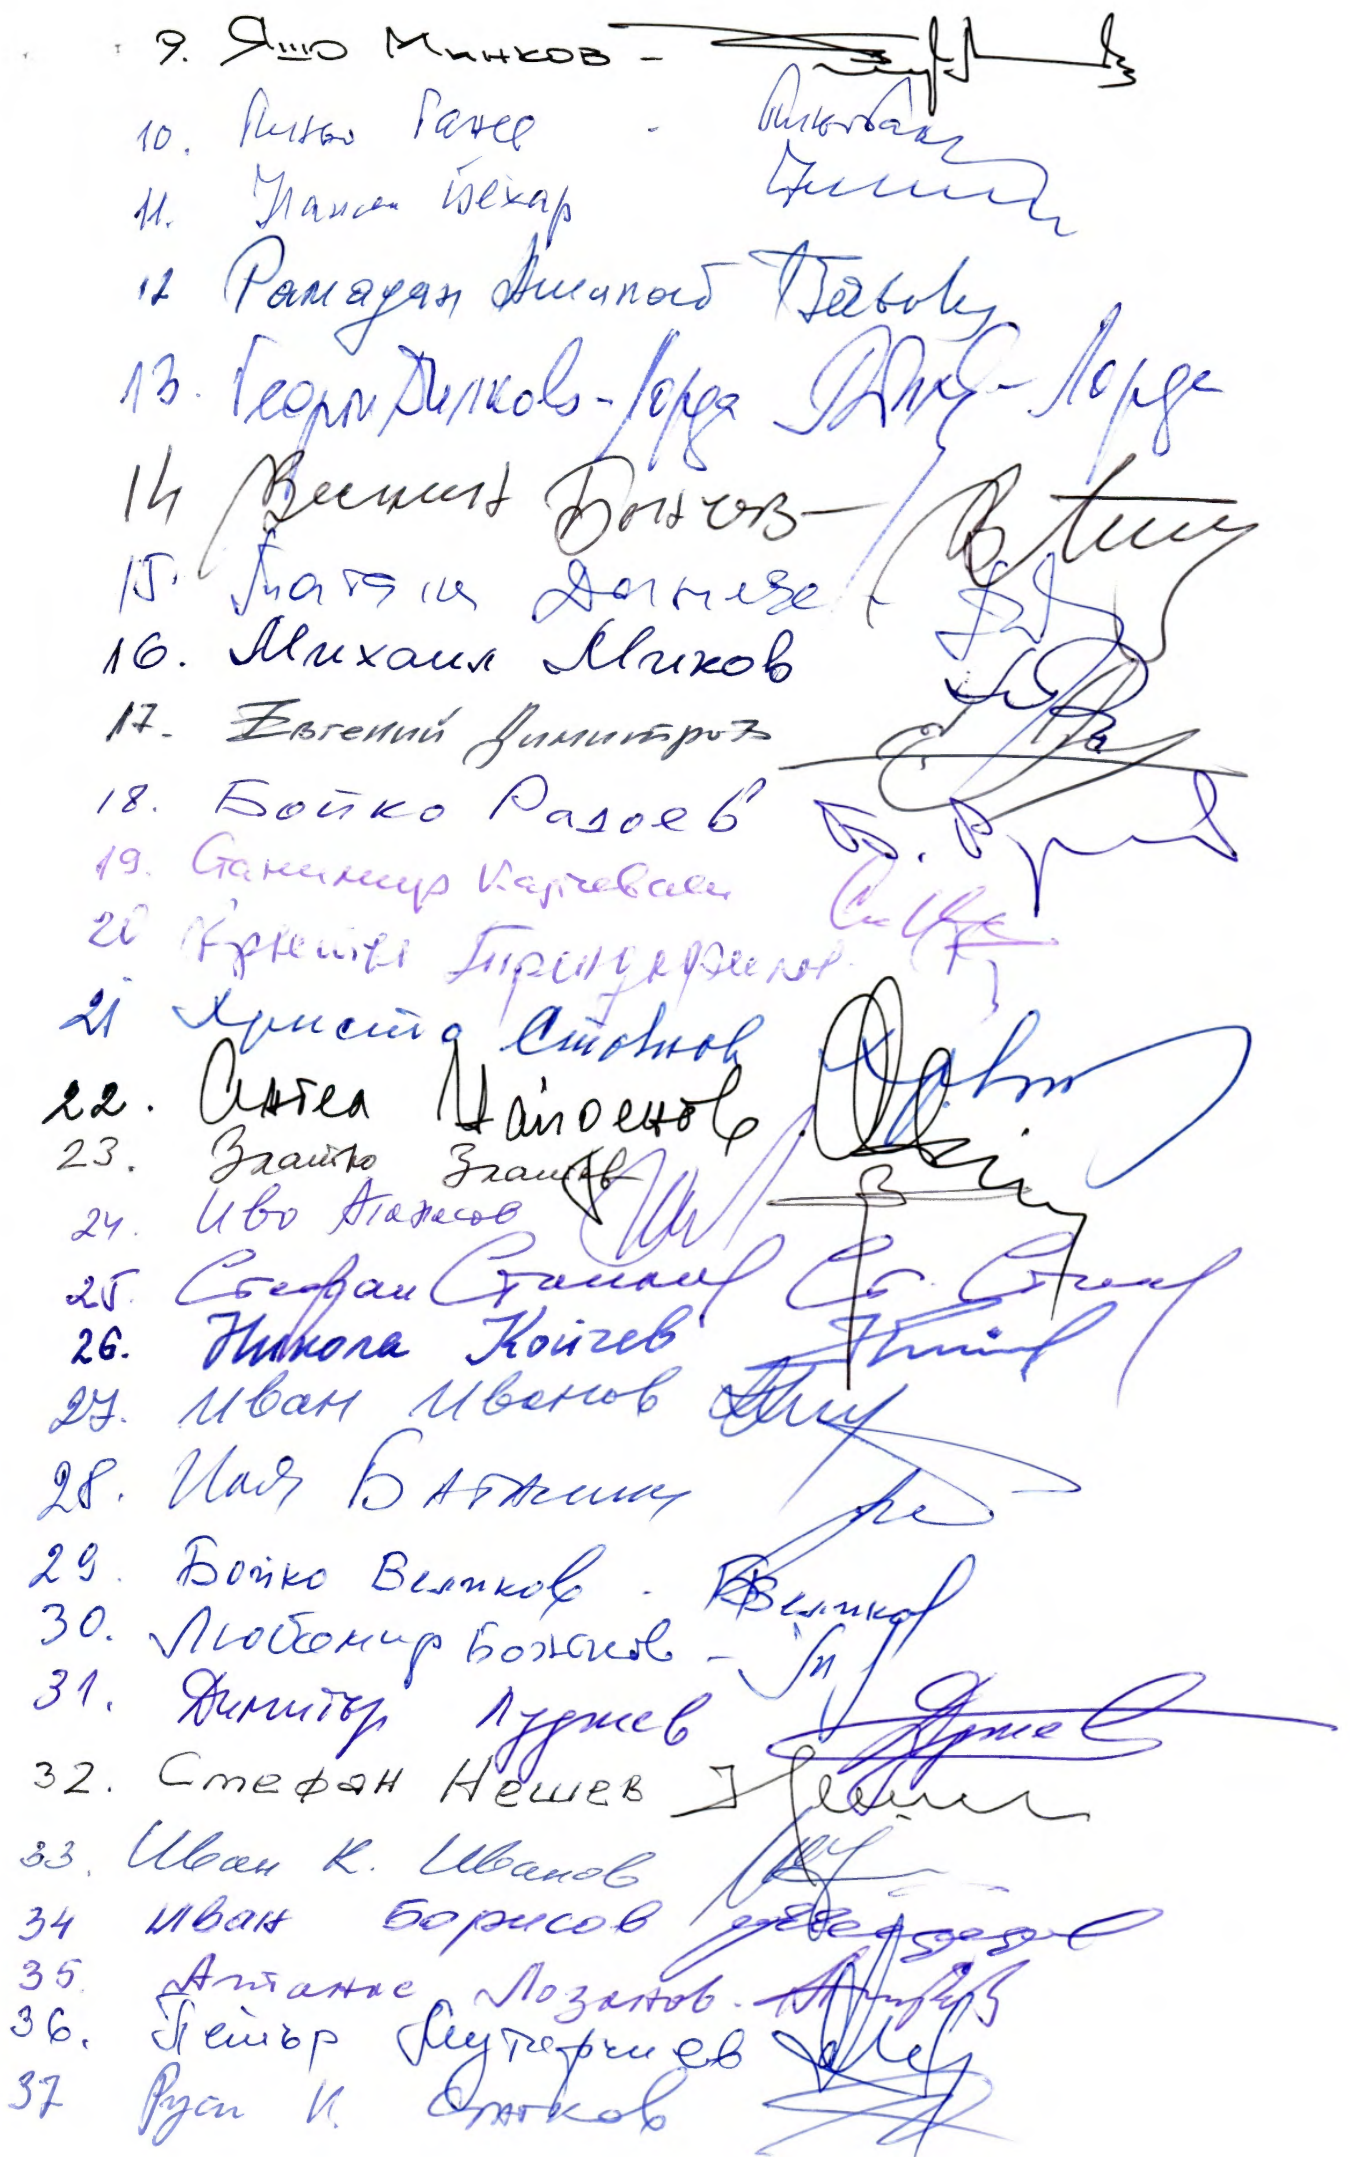 9. Яшо Минков -
10. Пиньо Ганев -
11. Бехар
12 Рамадан Аталай
13. Георги Дилков - Лорда Лорда
14 Веселин Бончев -
15. Татяна Дончева -
16. Михаил Миков
17. Евгений Димитров
18. Бойко Радоев Б. Р
19. Станимир Калчевски
20 Кръстю Трендафилов
21 Христо Стоянов
22. Ангел Найденов
23. Златко Златев
24. Иво Атанасов
25. Стефан Стоилов Ст. Стоил
26. Никола Койчев
27. Иван Иванов
28. Илия Баташки
29. Бойко Великов - ББ Великов
30. Любомир Божков -
31. Димитър Луджев
32. Стефан Нешев
33. Иван К. Иванов
34 Иван Борисов
35. Атанас Лозанов -
36. Петър Мутафчиев
37 К.